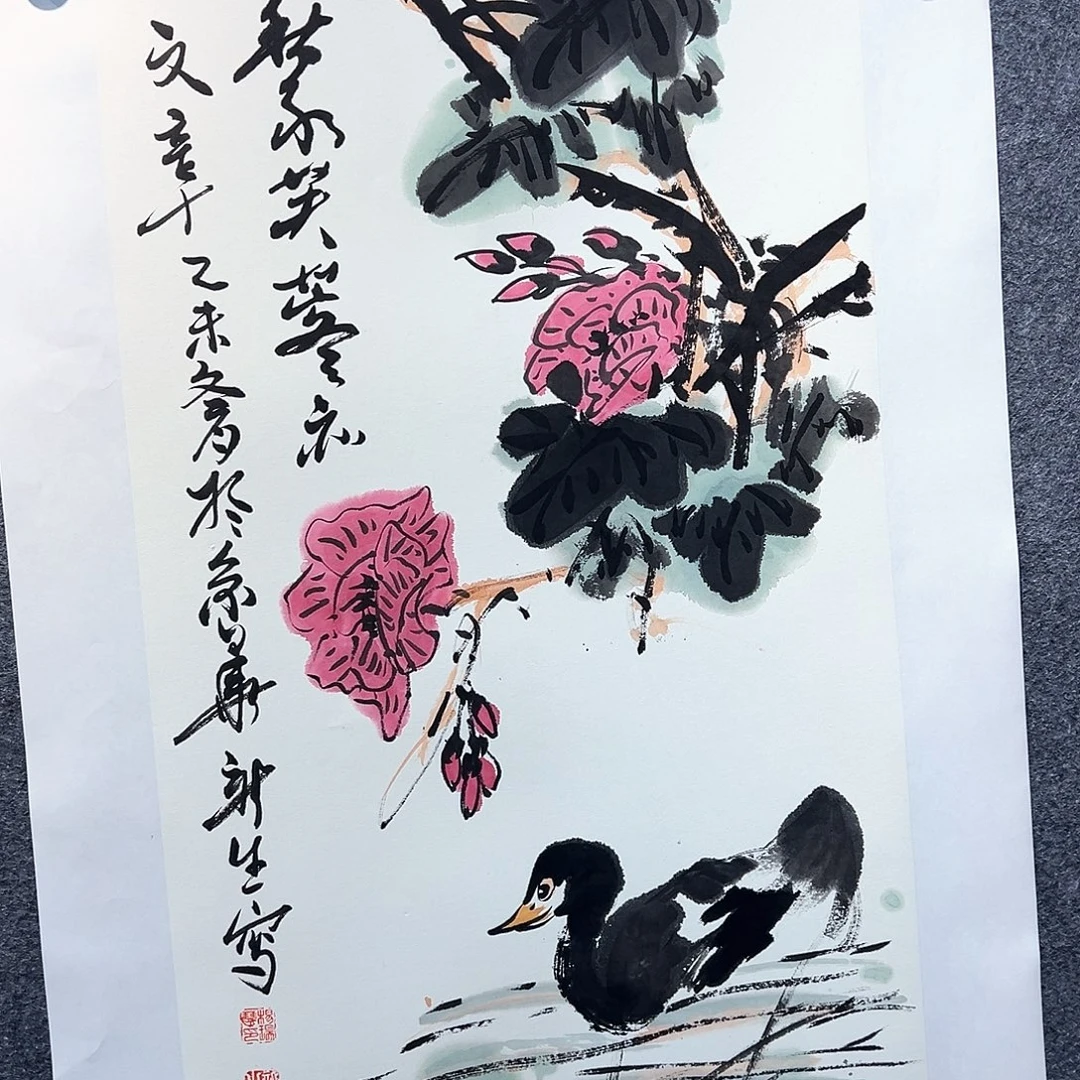 秋水芙蓉
文章 乙未冬月於京華新生寫